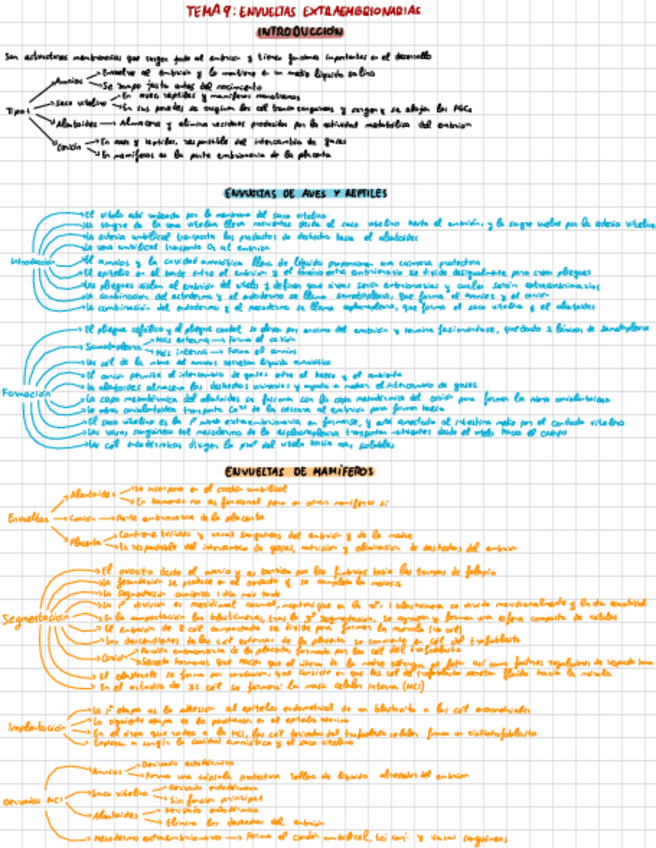 TEMA 9: ENVUELTAS EXTRAEMBRIONARIAS
INTRODUCCIÓN
Son estructuras membranosas que surgen junto al embrión y tienen funciones importantes en el desarrollo
Tipos
Amnios
Envuelve al embrión y lo mantiene en un medio líquido salino
Se rompe justo antes del nacimiento
Saco vitelino
En aves, reptiles y mamíferos
En sus paredes se originan las cel y surgen y se alojan las PGCs
Alantoides
Almacena y elimina residuos producidos por la actividad metabólica del embrión
Corión
En aves y reptiles, responsable del intercambio de gases
En mamíferos es la parte embrionaria de la placenta
ENVUELTAS DE AVES Y REPTILES
Introducción
El vitelo está rodeado por la membrana del saco vitelino
La sangre de la vena vitelina lleva nutrientes desde el saco vitelino hasta el embrión, y la sangre vuelve por la arteria vitelina
La arteria umbilical transporta los productos de deshecho hacia el alantoides
La vena umbilical transporta O₂ al embrión
El amnios y la cavidad amniótica llena de líquido proporcionan una cámara protectora
El epitelio en el borde entre el embrión y el dominio extraembrionario se divide desigualmente para crear pliegues
Los pliegues aíslan al embrión del vitelo y definen que áreas serán embrionarias y cuales serán extraembrionarias
La combinación del ectodermo y el mesodermo se llama somatopleura, que forma el amnios y el corión
La combinación del endodermo y el mesodermo se llama esplacnopleura, que forma el saco vitelino y el alantoides
Formación
El pliegue cefálico y el pliegue caudal se elevan por encima del embrión y terminan fusionándose, quedando 2 láminas de somatopleura
Somatopleura
Más externa → Forma el corión
Más interna → Forma el amnios
Las cel de la mbna del amnios secretan líquido amniótico
El corión permite el intercambio de gases entre el huevo y el ambiente
La alantoides almacena los deshechos urinarios y ayuda a mediar el intercambio de gases
La capa mesodérmica del alantoides se fusiona con la capa mesodérmica del corión para formar la mbna corioalantoidea
La mbna corioalantoidea transporta Ca²⁺ de la cáscara al embrión para formar huesos
El saco vitelino es la 1ª mbna extraembrionaria en formarse, y está conectado al intestino medio por el conducto vitelino
Los vasos sanguíneos del mesodermo de la esplacnopleura transportan nutrientes desde el vitelo hacia el cuerpo
Las cel endodérmicas digieren la prot del vitelo hasta más solubles
ENVUELTAS DE MAMÍFEROS
Envueltas
Alantoides
Se incorpora en el cordón umbilical
En humanos no es funcional pero en otros mamíferos sí
Corión → Parte embrionaria de la placenta
Placenta
Contiene tejidos y vasos sanguíneos del embrión y de la madre
Es responsable del intercambio de gases, nutrición y eliminación de deshechos del embrión
Segmentación
El ovocito desde el ovario y es barrido por las fimbrias hacia las trompas de falopio
La fecundación se produce en el oviducto y se completa la meiosis
La segmentación comienza 1 día más tarde
La 1ª división es meridional normal, mientras que en la 2ª, 1 blastómera se divide meridionalmente y la otra ecuatorial
En la compactación las blastómeras, tras la 3ª segmentación, se agrupan y forman una esfera compacta de células
El embrión de 8 cel compactadas se divide para formar la mórula (16 cel)
Los descendientes de las cel externas de la se convierten en cel del trofoblasto
Corión
Porción embrionaria de la placenta formada por las cel del trofoblasto
Secreta hormonas que hacen que el útero de la madre retenga el feto así como factores reguladores de
El blastocisto se forma por cavitación, que consiste en que las cel del trofoblasto secretan fluido hacia la mórula
En el estadio de 32 cel se forma la masa celular interna (MCI)
Implantación
La 1ª etapa es la adhesión al epitelio endometrial de un blastocisto a las cel endometriales
La siguiente etapa es la penetración en el epitelio uterino
En el área que rodea a la MCI, las cel derivadas del trofoblasto celular forman un sincitiotrofoblasto
Empieza a surgir la cavidad amniótica y el saco vitelino
Derivados MCI
Amnios
Derivado ectodérmico
Forma una cápsula protectora rellena de líquido alrededor del embrión
Saco vitelino
Derivado endodérmico
Sin función principal
Alantoides
Derivado endodérmico
Elimina los deshechos del embrión
Mesodermo extraembrionario → Forma el cordón umbilical, tej conj y vasos sanguíneos